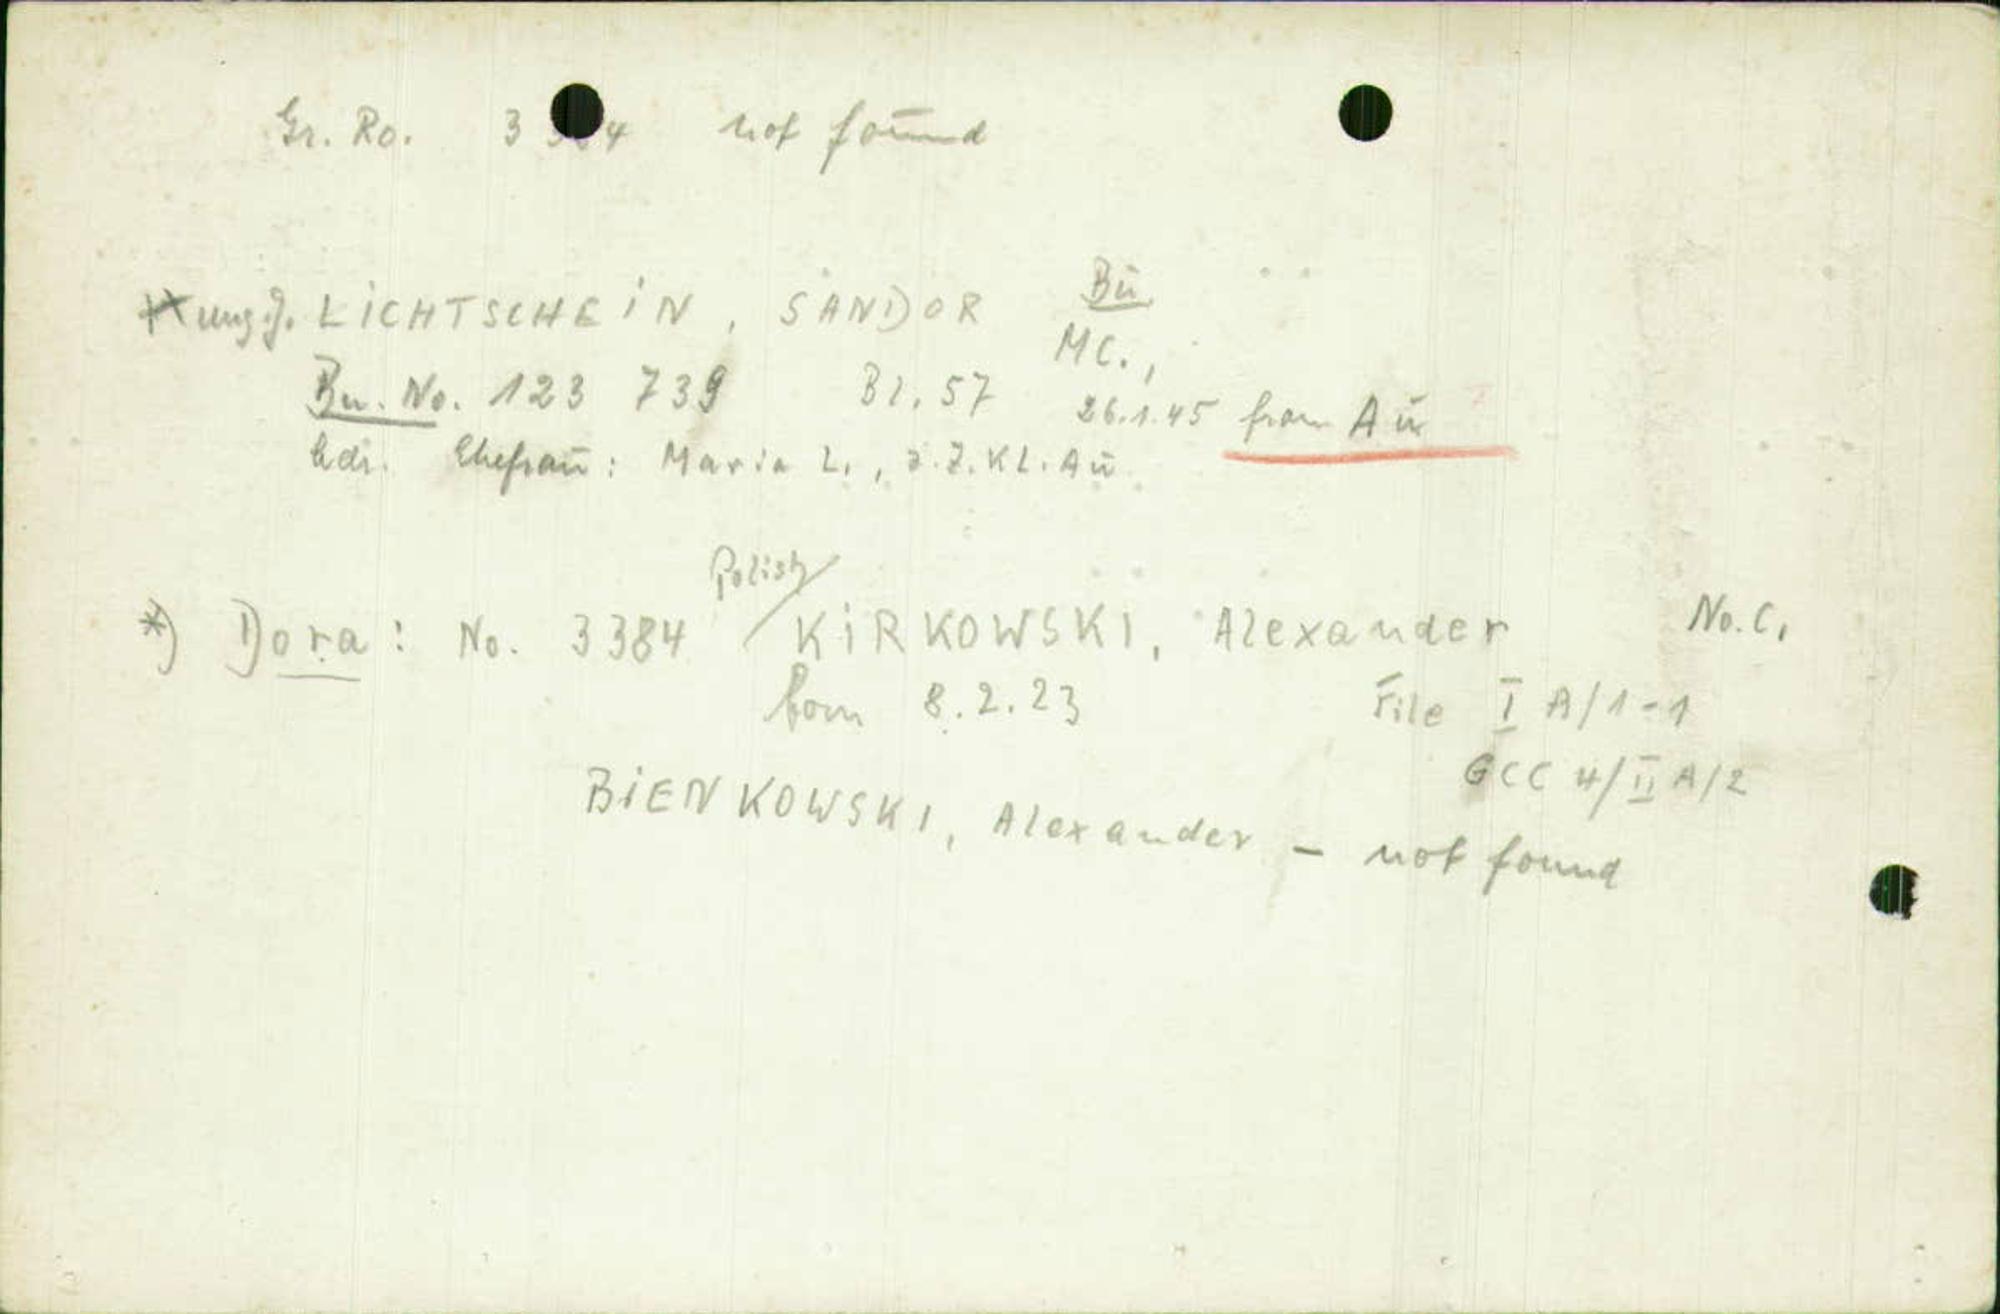 Gr. Ro. 3 384 not found
ung. J. LICHTSCHEIN, SANDOR Bu
MC.,
Bu. No. 123 739 Bl. 57 26.1.45 from Au
Adr. Ehefrau: Maria L., z.Z. KL. Au
Polish
*) Dora: No. 3384 / KIRKOWSKI, Alexander No. C.
born 8.2.23 File I A/1-1
GCC 4/II A/2
BIENKOWSKI, Alexander - not found